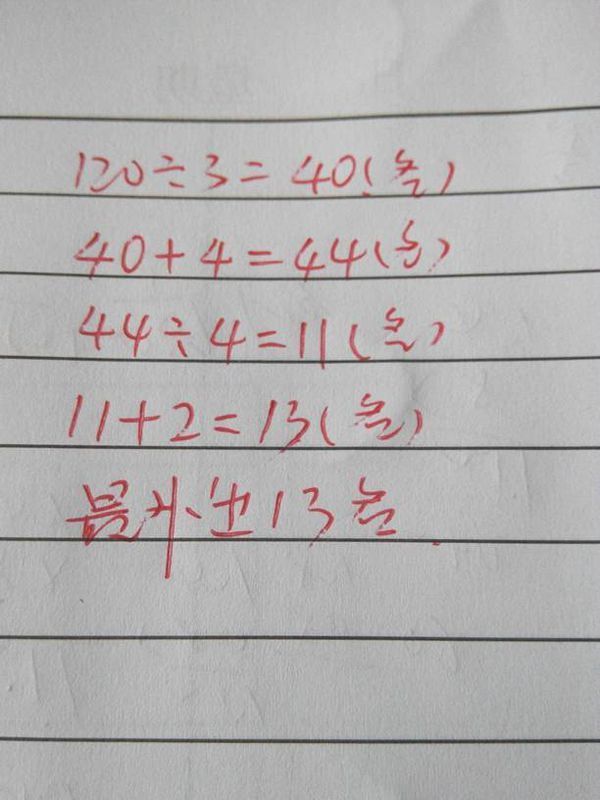 120÷3=40(岁)
40+4=44(岁)
44÷4=11(岁)
11+2=13(岁)
最小 13岁